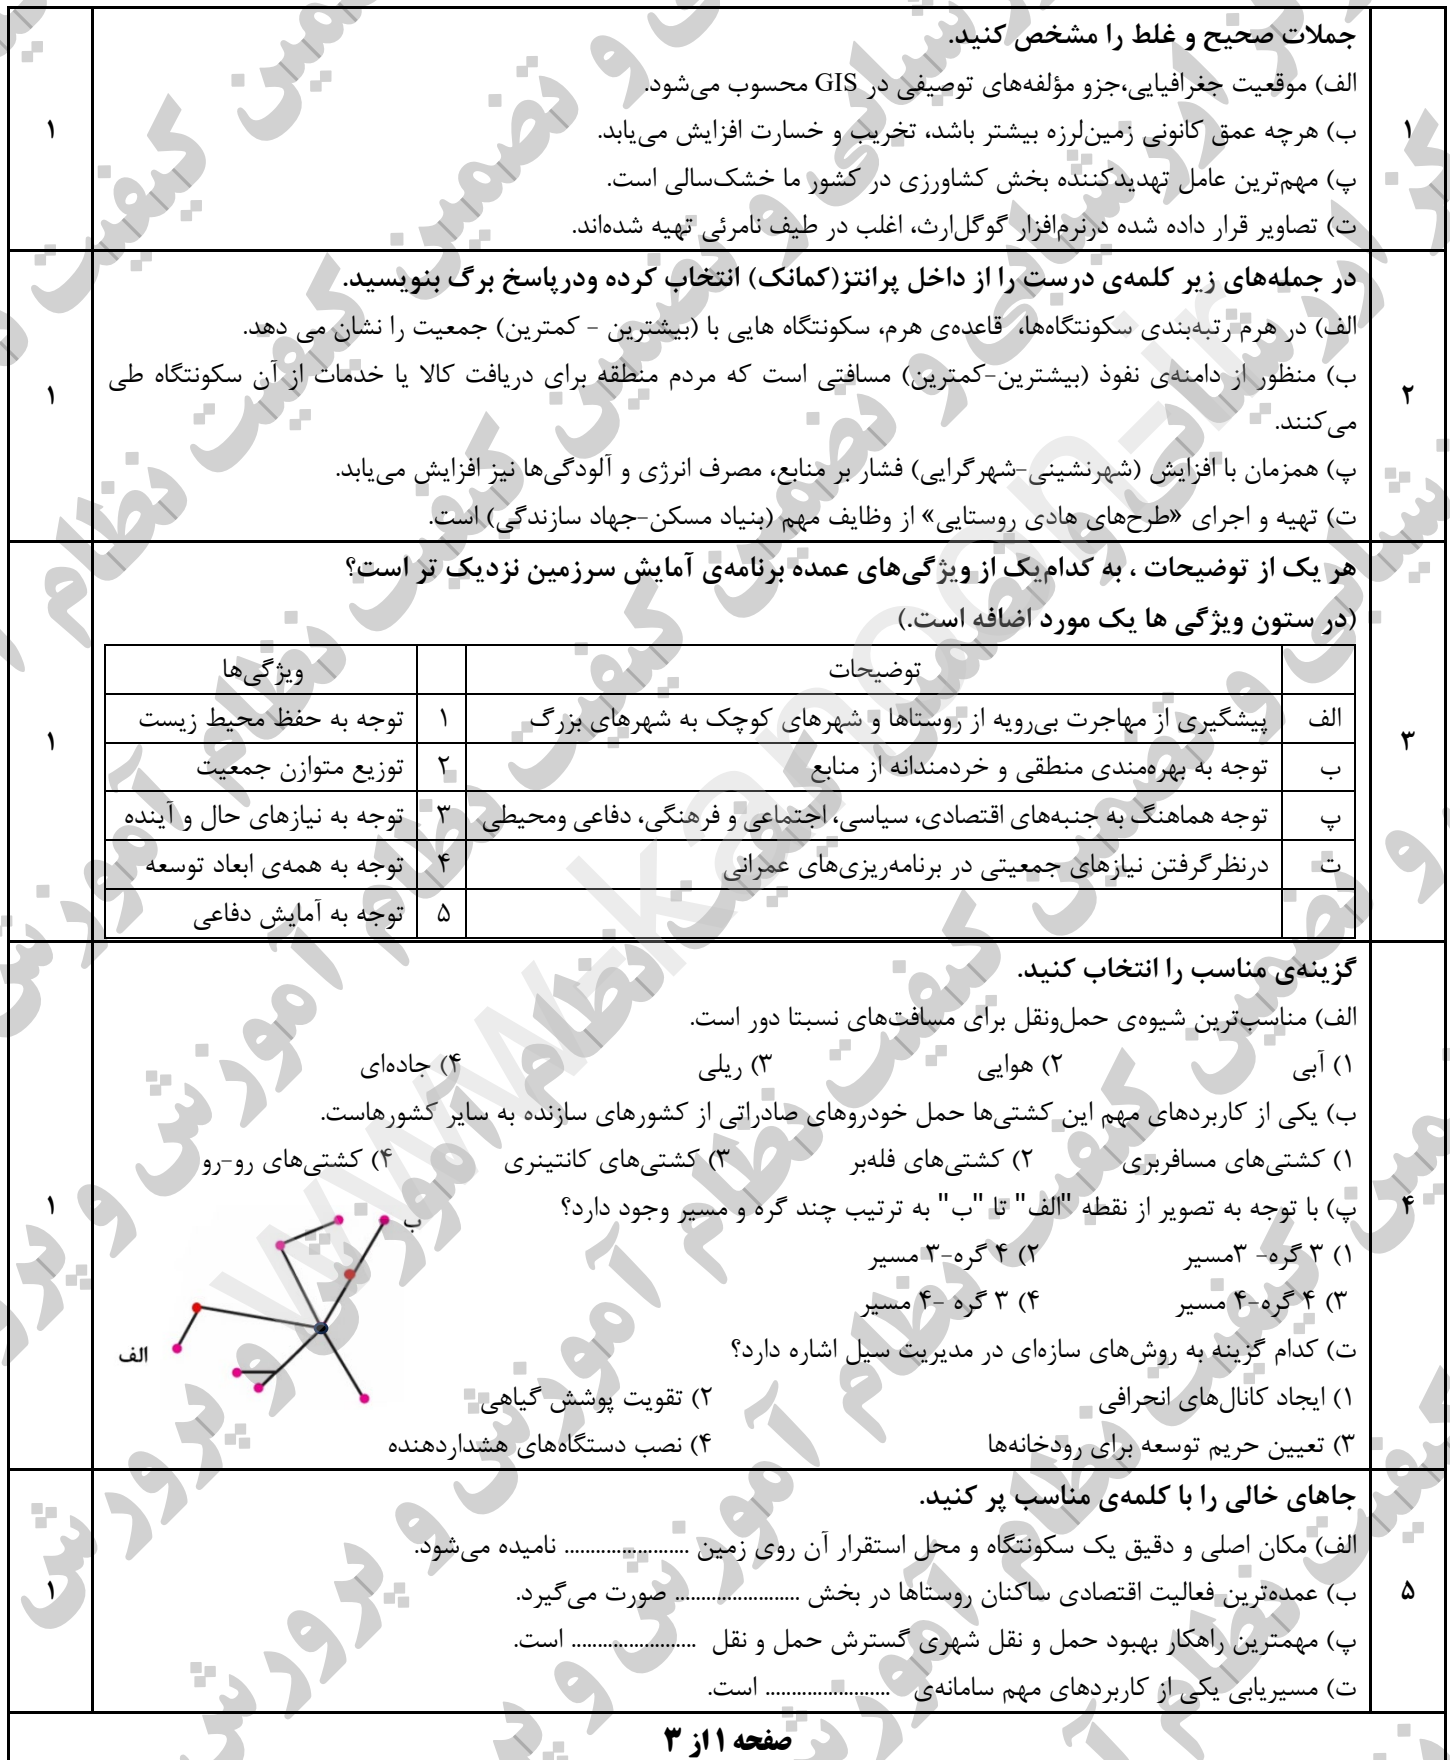 جملات صحیح و غلط را مشخص کنید.
الف) موقعیت جغرافیایی،جزو مؤلفه‌های توصیفی در GIS محسوب می‌شود.
۱
ب) هرچه عمق کانونی زمین‌لرزه بیشتر باشد، تخریب و خسارت افزایش می‌یابد.
۱
پ) مهم‌ترین عامل تهدیدکننده بخش کشاورزی در کشور ما خشک‌سالی است.
ت) تصاویر قرار داده شده درنرم‌افزار گوگل‌ارث، اغلب در طیف نامرئی تهیه شده‌اند.
در جمله‌های زیر کلمه‌ی درست را از داخل پرانتز(کمانک) انتخاب کرده ودرپاسخ برگ بنویسید.
الف) در هرم رتبه‌بندی سکونتگاه‌ها، قاعده‌ی هرم، سکونتگاه هایی با (بیشترین - کمترین) جمعیت را نشان می دهد.
۲
ب) منظور از دامنه‌ی نفوذ (بیشترین-کمترین) مسافتی است که مردم منطقه برای دریافت کالا یا خدمات از آن سکونتگاه طی
می‌کنند.
۱
پ) همزمان با افزایش (شهرنشینی-شهرگرایی) فشار بر منابع، مصرف انرژی و آلودگی‌ها نیز افزایش می‌یابد.
ت) تهیه و اجرای «طرح‌های هادی روستایی» از وظایف مهم (بنیاد مسکن-جهاد سازندگی) است.
هر یک از توضیحات ، به کدام‌یک از ویژگی‌های عمده برنامه‌ی آمایش سرزمین نزدیک تر است؟
(در ستون ویژگی ها یک مورد اضافه است.)
توضیحات ویژگی‌ها
الف پیشگیری از مهاجرت بی‌رویه از روستاها و شهرهای کوچک به شهرهای بزرگ ۱ توجه به حفظ محیط زیست
۳
ب توجه به بهره‌مندی منطقی و خردمندانه از منابع ۲ توزیع متوازن جمعیت
۱
پ توجه هماهنگ به جنبه‌های اقتصادی، سیاسی، اجتماعی و فرهنگی، دفاعی ومحیطی ۳ توجه به نیازهای حال و آینده
ت درنظرگرفتن نیازهای جمعیتی در برنامه‌ریزی‌های عمرانی ۴ توجه به همه‌ی ابعاد توسعه
۵ توجه به آمایش دفاعی
گزینه‌ی مناسب را انتخاب کنید.
الف) مناسب‌ترین شیوه‌ی حمل‌ونقل برای مسافت‌های نسبتا دور است.
۱) آبی ۲) هوایی ۳) ریلی ۴) جاده‌ای
ب) یکی از کاربردهای مهم این کشتی‌ها حمل خودروهای صادراتی از کشورهای سازنده به سایر کشورهاست.
۱) کشتی‌های مسافربری ۲) کشتی‌های فله‌بر ۳) کشتی‌های کانتینری ۴) کشتی‌های رو-رو
۴
پ) با توجه به تصویر از نقطه "الف" تا "ب" به ترتیب چند گره و مسیر وجود دارد؟
ب
۱
۱) ۳ گره- ۳مسیر ۲) ۴ گره-۳ مسیر
۳) ۴ گره-۴ مسیر ۴) ۳ گره -۴ مسیر
الف
ت) کدام گزینه به روش‌های سازه‌ای در مدیریت سیل اشاره دارد؟
۱) ایجاد کانال‌های انحرافی ۲) تقویت پوشش گیاهی
۳) تعیین حریم توسعه برای رودخانه‌ها ۴) نصب دستگاه‌های هشداردهنده
جاهای خالی را با کلمه‌ی مناسب پر کنید.
الف) مکان اصلی و دقیق یک سکونتگاه و محل استقرار آن روی زمین ........................ نامیده می‌شود.
۵
ب) عمده‌ترین فعالیت اقتصادی ساکنان روستاها در بخش ........................ صورت می‌گیرد.
۱
پ) مهمترین راهکار بهبود حمل و نقل شهری گسترش حمل و نقل ........................ است.
ت) مسیریابی یکی از کاربردهای مهم سامانه‌ی ........................ است.
صفحه ۱ از ۳